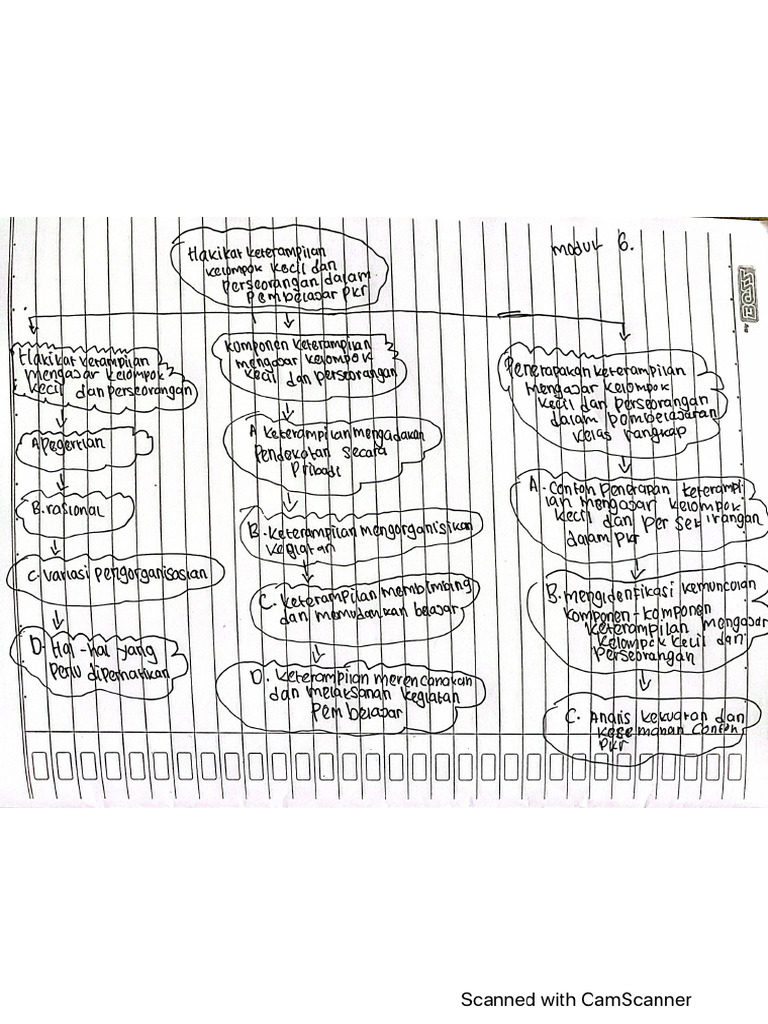 Hakikat keterampilan
kelompok kecil dan
perseorangan dalam
pembelajar PKr
modul 6.
SiDU
Hakikat ketrampilan
mengajar kelompok
kecil dan perseorangan
A. Pegertian
B. rasional
C. Variasi pengorganisasian
D. Hal-hal yang
perlu diperhatikan
Komponen keterampilan
mengajar kelompok
kecil dan perseorangan
A keterampilan mengadakan
Pendekatan secara
Pribadi
B. keterampilan mengorganisikan
kegiatan
C. keterampilan membimbing
dan memudahkan belajar
D. keterampilan merencanakan
dan melaksanan kegiatan
Pembelajar
Penerapakan keterampilan
mengajar kelompok
kecil dan perseorangan
dalam pembelajaran
kelas rangkap
A. Contoh penerapan keterampi
lan mengajar kelompok
kecil dan perseorangan
dalam PKr
B. mengidenfikasi kemunculan
komponen-komponen
keterampilan mengajar
kelompok kecil dan
Perseorangan
C. Analis kekuatan dan
contoh
PKr
Scanned with CamScanner